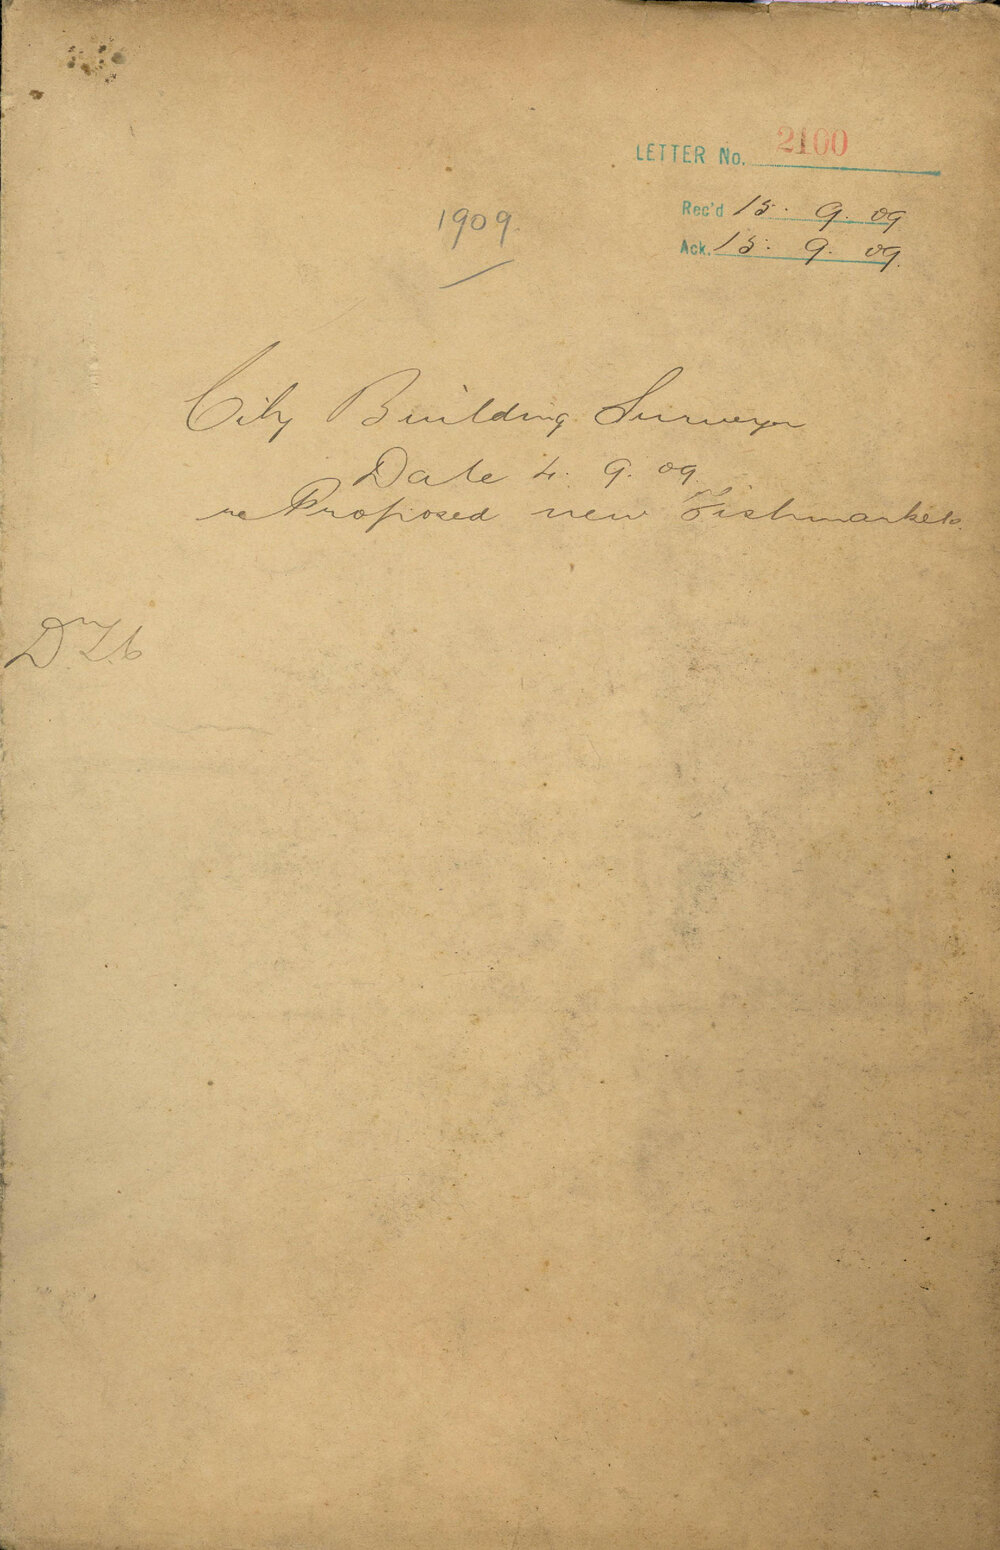 LETTER No. 2100
Rec'd 15. 9. 09
Ack. 15. 9. 09.
1909.
City Building Surveyor
Date 4. 9. 09.
re Proposed new Fishmarkets.